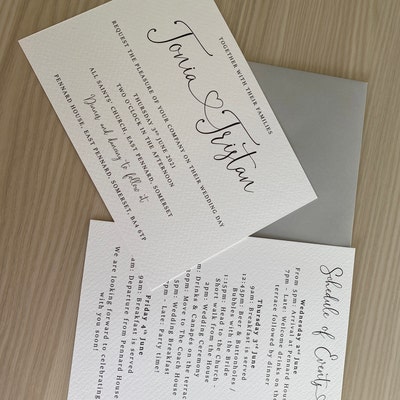 TOGETHER WITH THEIR FAMILIES
Tonia
Tristan
REQUEST THE PLEASURE OF YOUR COMPANY ON THEIR WEDDING DAY
THURSDAY 3RD JUNE 2021
TWO O'CLOCK IN THE AFTERNOON
ALL SAINTS' CHURCH, EAST PENNARD, SOMERSET
Dinner and dancing to follow at:
PENNARD HOUSE, EAST PENNARD, SOMERSET, BA4 6TP
Schedule of Events
Wednesday 2nd June
From 5pm: Arrival at Pennard
7pm - Late: Welcome drinks on the
terrace followed by dinner
Thursday 3rd June
9am: Breakfast is served
12:45pm: Beer & Buttonholes /
Bubbles with the Bride
1:15pm: Head to the Church -
Short walk from the House
2pm: Wedding Ceremony
pm: Drinks & Canapés on the terrace
pm: Move to The Coach House
pm: Wedding Breakfast
pm - Late: Party time!
Friday 4th June
9am: Breakfast is served
am: Departure from Pennard House
We are looking forward to celebrating
with you soon!